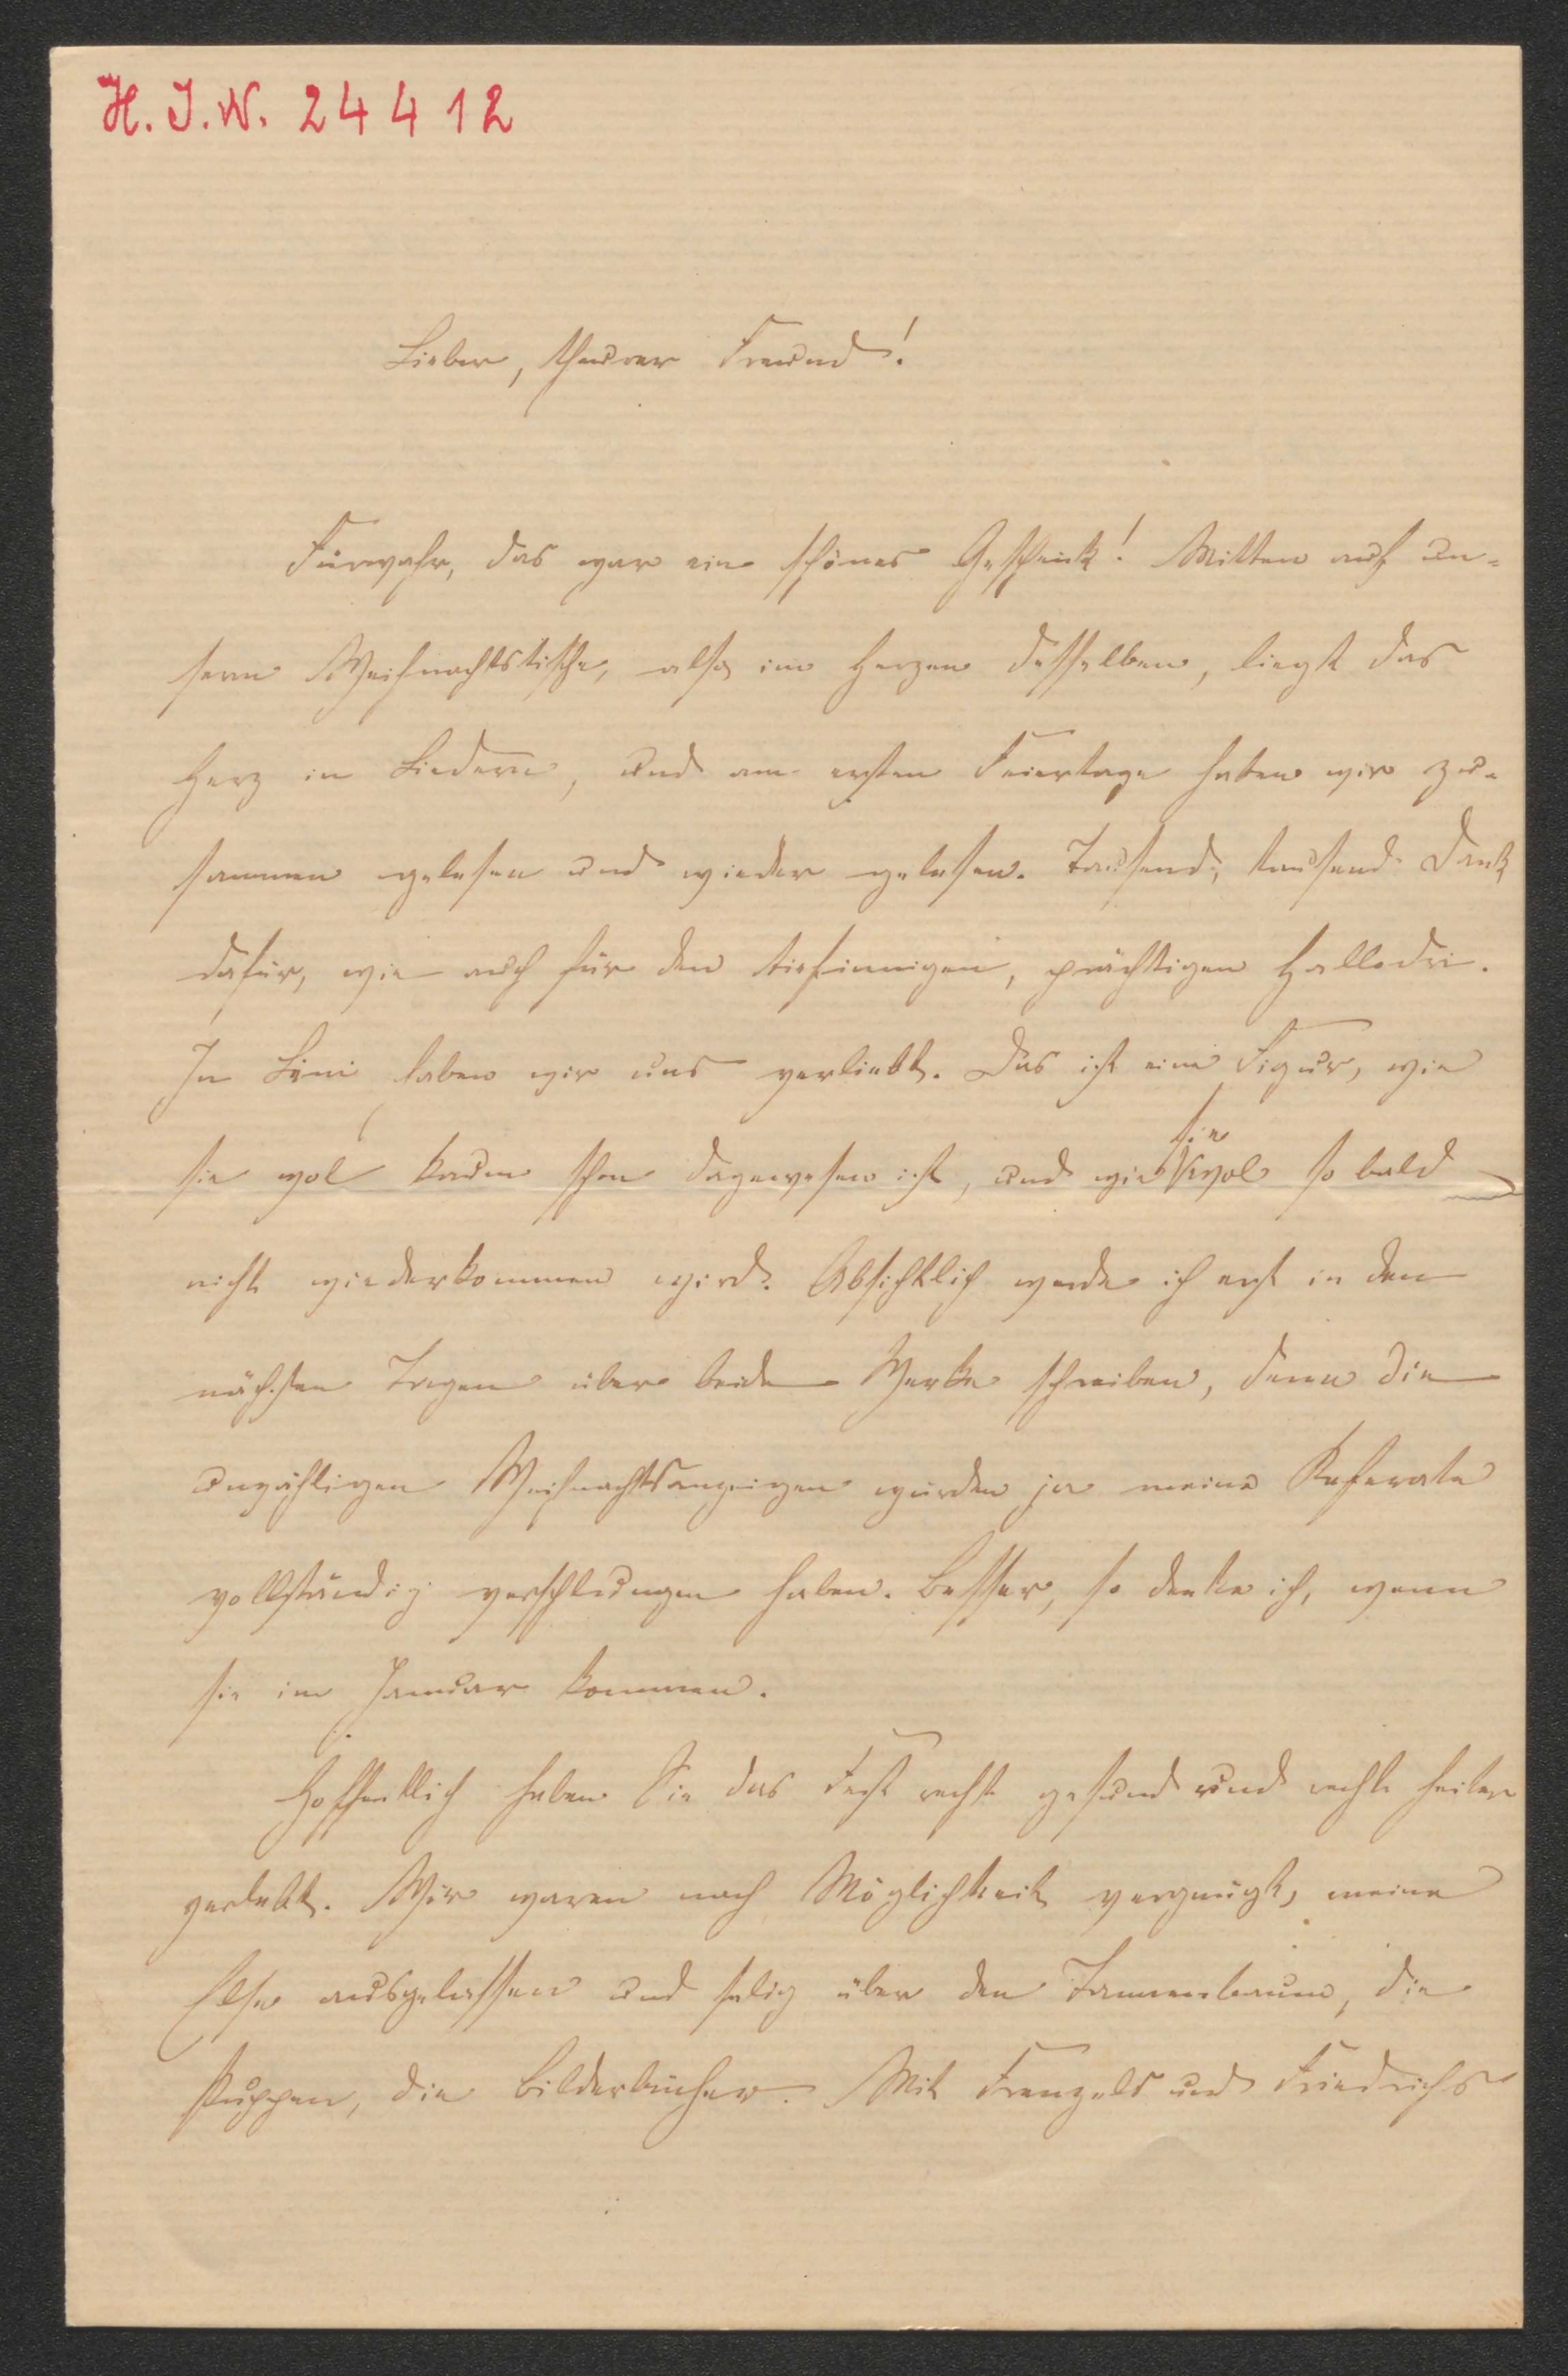 H. I. N. 24412
Lieber, theurer Freund!
Fürwahr, das war ein schönes Geschenk! Mitten auf un-
serm Weihnachtstische, also im Herzen desselben, liegt das
Herz in Liedern, und am ersten Feiertage haben wir zu-
sammen gelesen und wieder gelesen. Tausend, tausend Dank
dafür, wie auch für den tiefsinnigen, prächtigen Hallodri.
In Leni haben wir uns verliebt. Das ist eine Figur, wie
sie wol kaum schon dagewesen ist, und wie sie wol so bald
nicht wiederkommen wird. Absichtlich werde ich erst in den
nächsten Tagen über beide Werke schreiben, denn die
unzähligen Weihnachtsanzeigen würden ja meine Referate
vollständig verschlungen haben. Besser, so denke ich, wenn
sie im Januar kommen.
Hoffentlich haben Sie das Fest recht gesund und recht heiter
verlebt. Wir waren nach Möglichkeit vergnügt, meine
Else ausgelassen und selig über den Tannenbaum, die
Puppen, die Bilderbücher. Mit Frenzels und Friedrichs